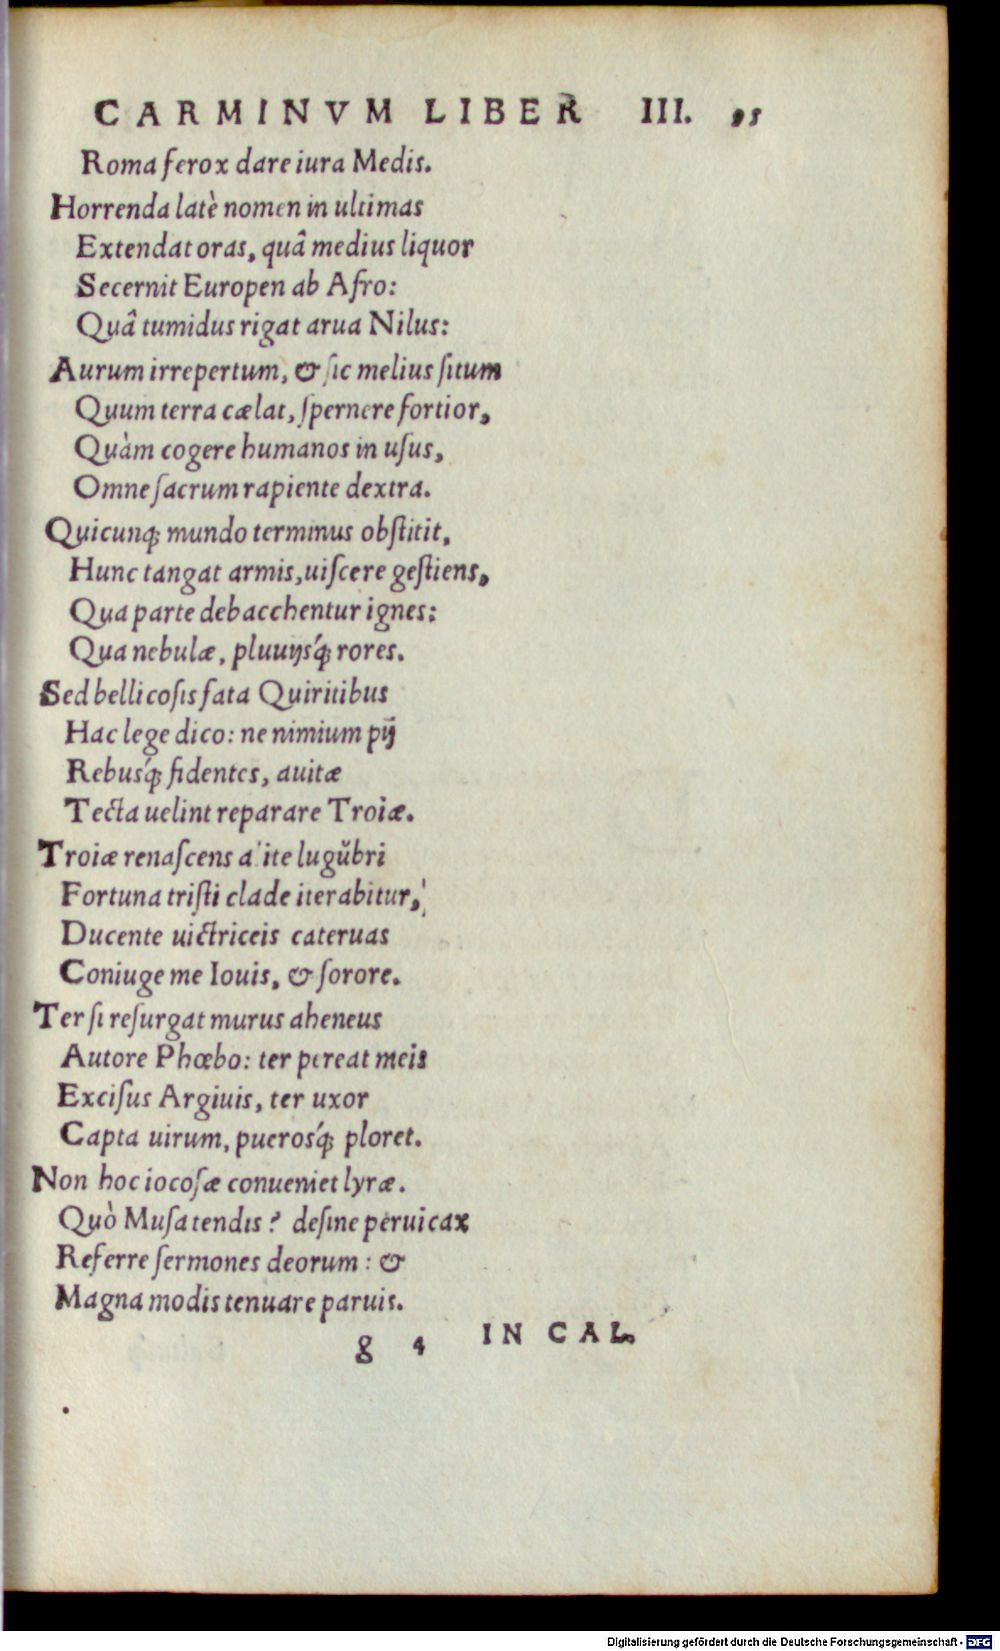 CARMINVM LIBER III. 95
Roma ferox dare iura Medis.
Horrenda latè nomen in ultimas
Extendat oras, quâ medius liquor
Secernit Europen ab Afro:
Quâ tumidus rigat arua Nilus:
Aurum irrepertum, & ſic melius ſitum
Quum terra cælat, ſpernere fortior,
Quàm cogere humanos in uſus,
Omne ſacrum rapiente dextra.
Quicunq; mundo terminus obſtitit,
Hunc tangat armis, uiſcere geſtiens,
Qua parte debacchentur ignes:
Qua nebulæ, pluuijsq́; rores.
Sed bellicoſis fata Quiritibus
Hac lege dico: ne nimium pij
Rebusq́; fidentes, auitæ
Tecta uelint reparare Troiæ.
Troiæ renaſcens a ite lugŭbri
Fortuna triſti clade iterabitur,
Ducente uictriceis cateruas
Coniuge me Iouis, & ſorore.
Ter ſi reſurgat murus aheneus
Autore Phœbo: ter pereat meis
Exciſus Argiuis, ter uxor
Capta uirum, puerosq́; ploret.
Non hoc iocoſæ conueniet lyræ.
Quò Muſa tendis? deſine peruicax
Referre ſermones deorum: &
Magna modis tenuare paruis.
g 4 IN CAL.
Digitalisierung gefördert durch die Deutsche Forschungsgemeinschaft - DFG